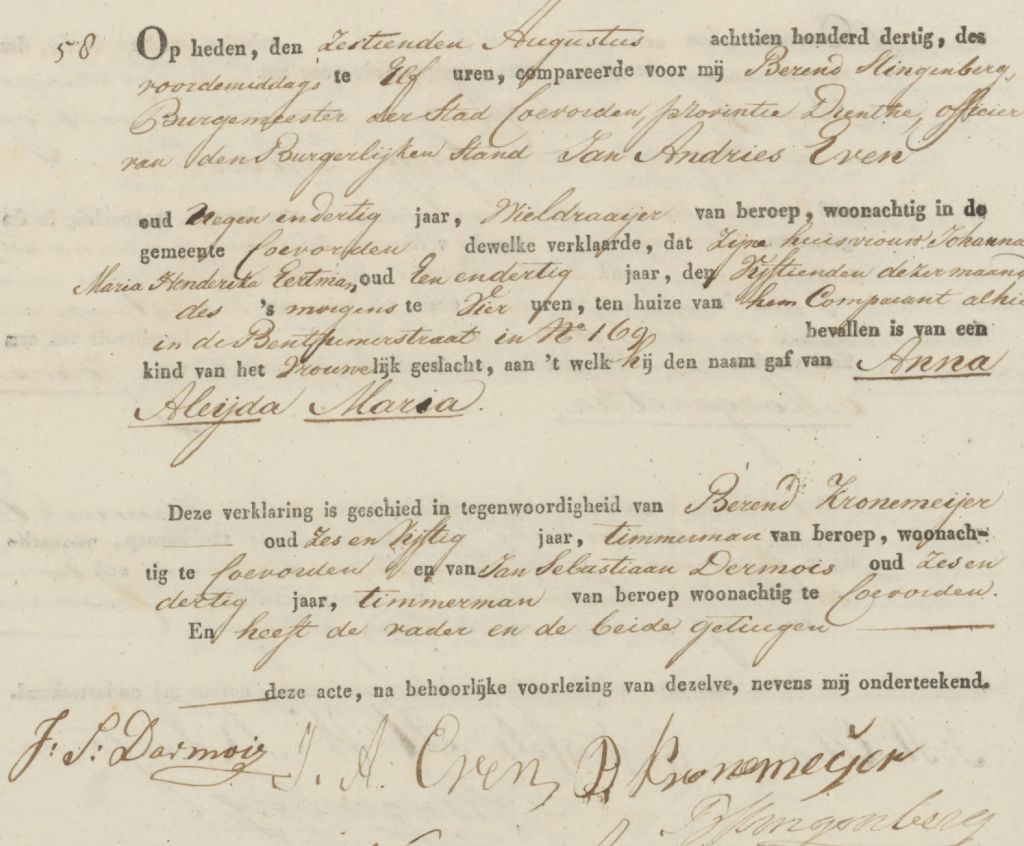 58 Op heden, den Zestienden Augustus achttien honderd dertig, des
voordemiddags te Elf uren, compareerde voor mij Berend Slingenberg,
Burgemeester der Stad Coevorden, provintie Drenthe, officier
van den Burgerlijken Stand Jan Andries Even
oud Negen en dertig jaar, Wieldraaijer van beroep, woonachtig in de
gemeente Coevorden dewelke verklaarde, dat Zijne huisvrouw Johanna
Maria Henderika Eertman, oud Een en dertig jaar, den Vijftienden dezer maand
des 's morgens te Vier uren, ten huize van hem Comparant alhier
in de Benthumerstraat in No 169 bevallen is van een
kind van het Vrouwelijk geslacht, aan 't welk hij den naam gaf van Anna
Aleijda Maria.
Deze verklaring is geschied in tegenwoordigheid van Berend Kronemeijer
oud Zes en Vijftig jaar, timmerman van beroep, woonach-
tig te Coevorden en van Jan Sebastiaan Dermois oud Zes en
dertig jaar, timmerman van beroep woonachtig te Coevorden.
En heeft de vader en de beide getuigen
deze acte, na behoorlijke voorlezing van dezelve, nevens mij onderteekend.
J: S: Darmois J. A. Even B Kronemeijer
BSlingenberg